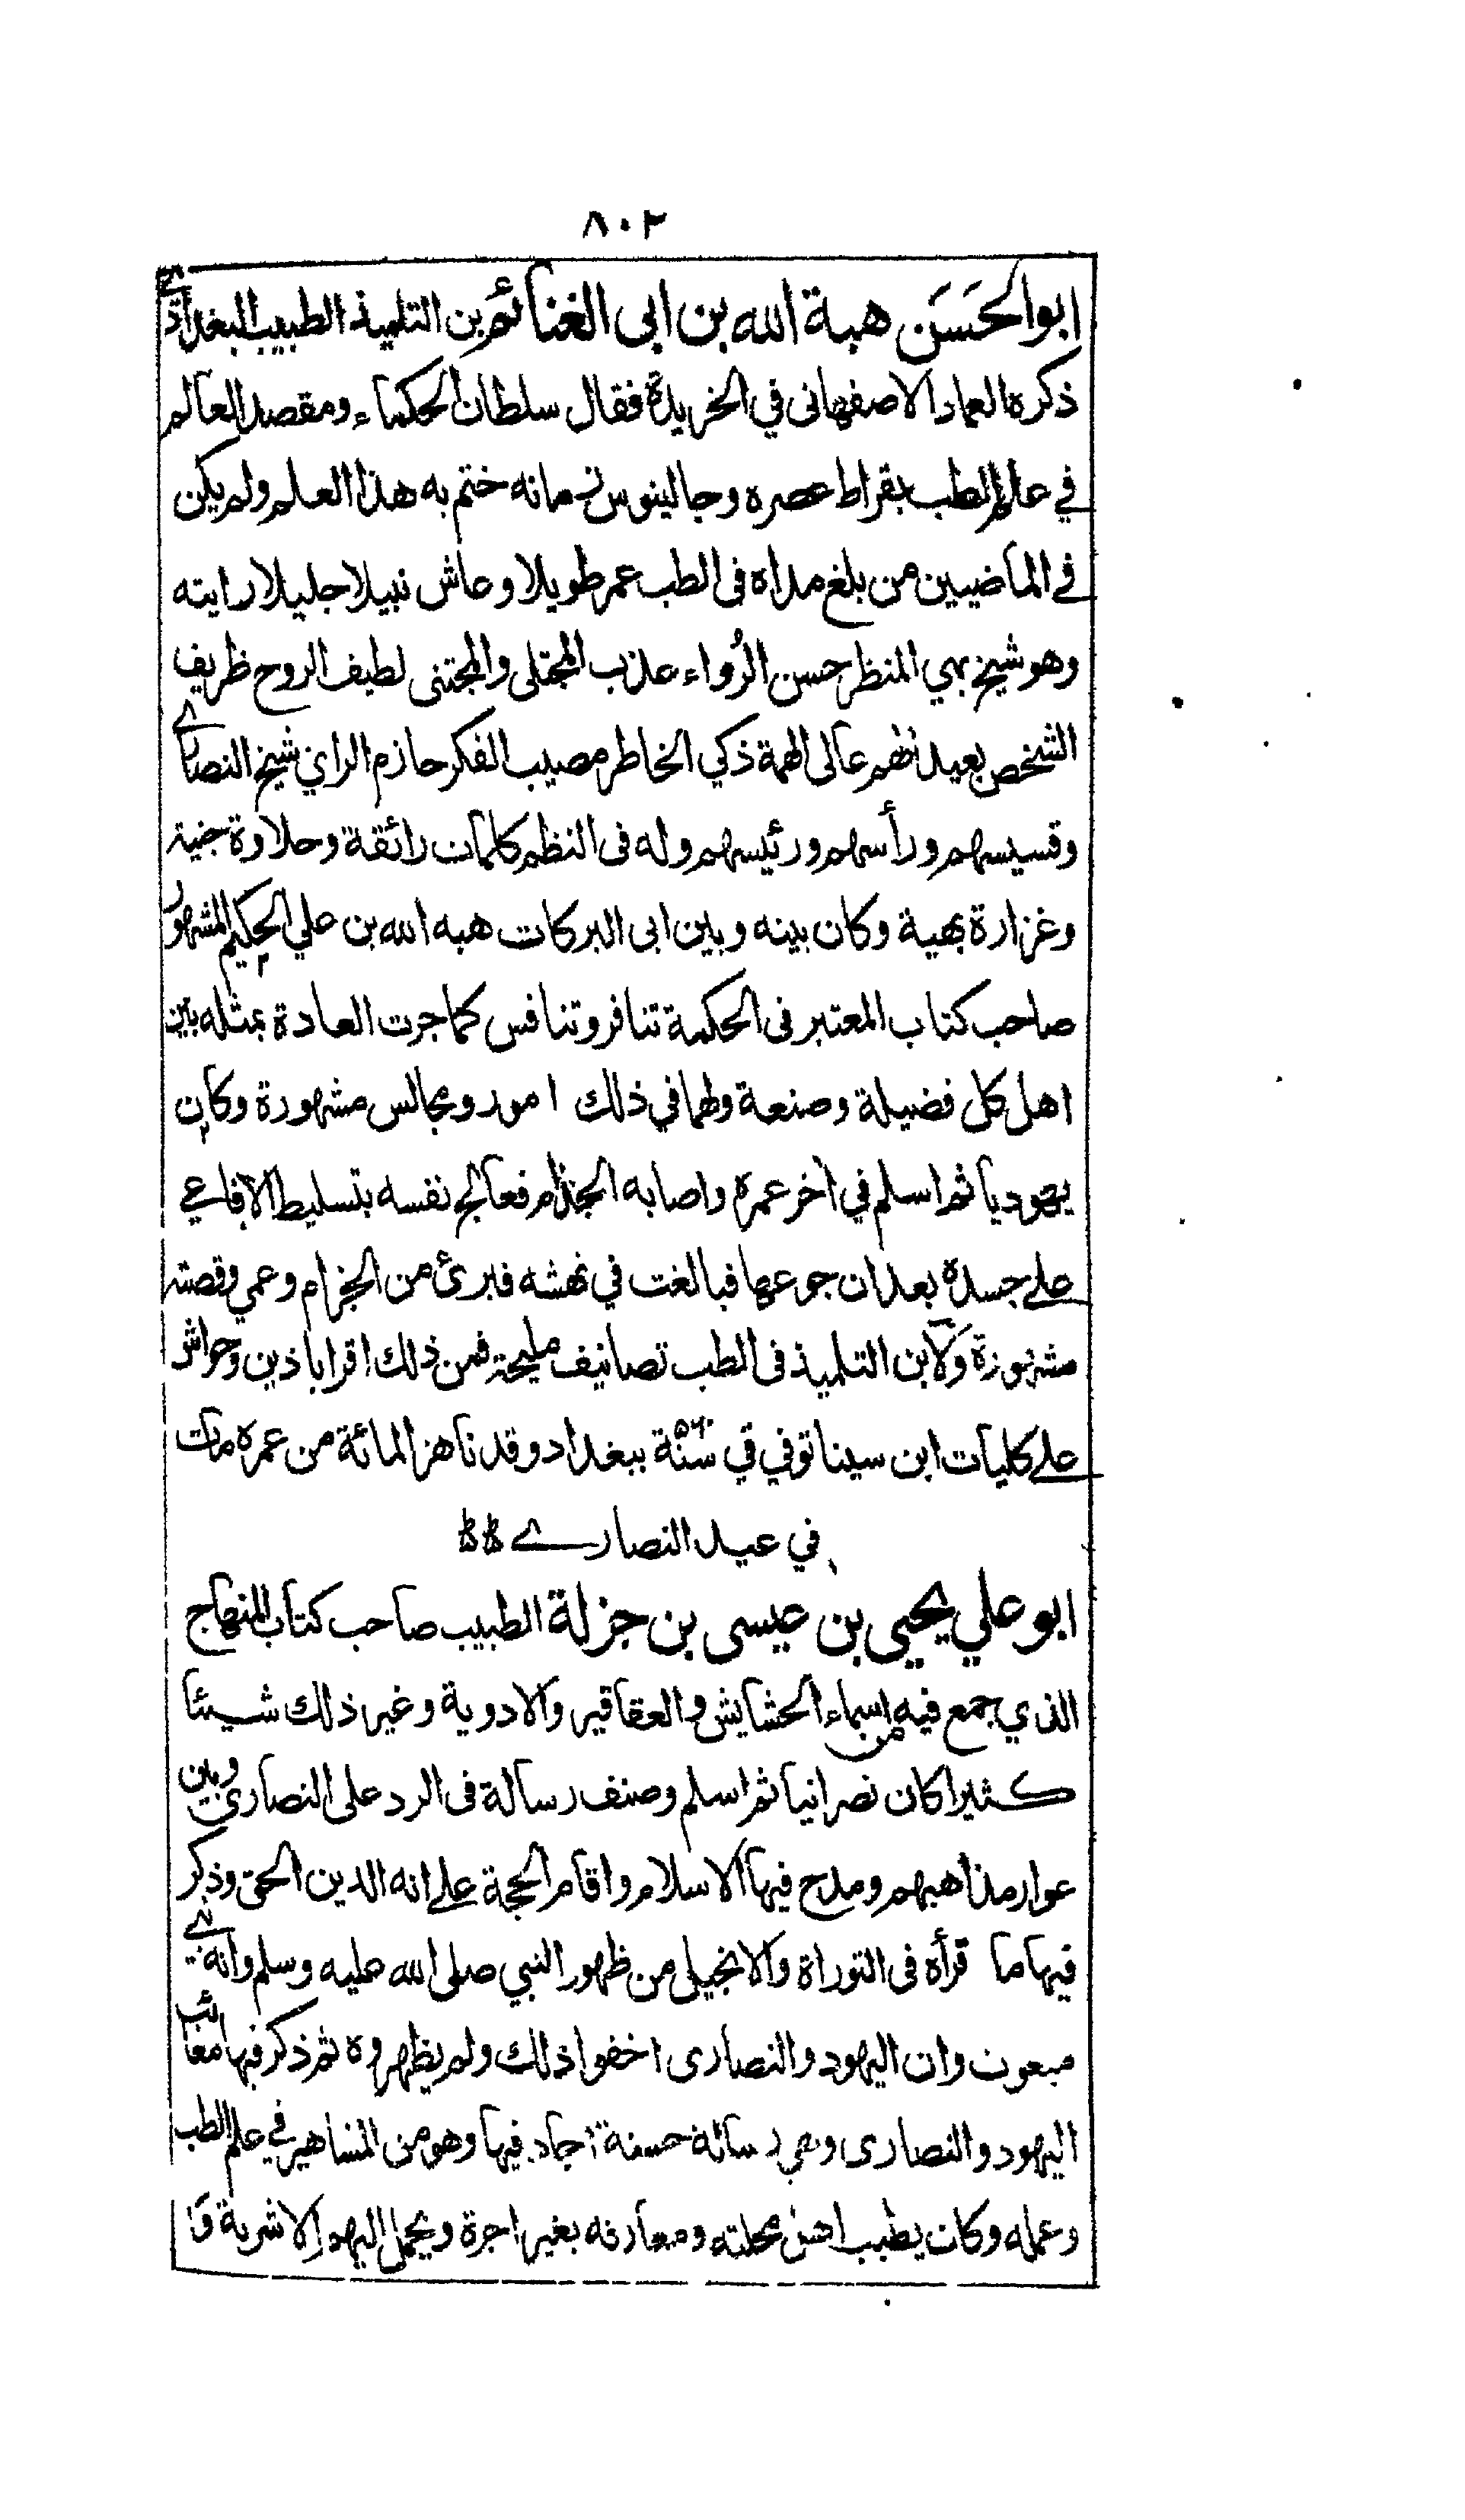 ٨٠٢
ابو الحَسَن هبة الله بن ابى الغنائم بن التلميذ الطبيب البغدادي
ذكره العماد الاصفهانى في الخريدة فقال سلطان الحكماء ومقصد العالم
في علم الطب بقراط عصره وجالينوس زمانه ختم به هذا العلم ولم يكن
في الماضيين من بلغ مداه فى الطب عمر طويلا وعاش نبيلا جليلا رايته
وهو شيخ بهي المنظر حسن الرُواء عذب المجتلى والمجتنى لطيف الروح ظريف
الشخص بعيد الهم عالى الهمة ذكي الخاطر مصيب الفكر حازم الراي شيخ النصارے
وقسيسهم ورأسهم ورئيسهم وله فى النظم كلمات رائقة وحلاوة جنية
وغزارة بهية وكان بينه وبين ابى البركات هبه الله بن علي الحكيم المشهور
صاحب كتاب المعتبر فى الحكمة تنافر وتنافس كما جرت العادة بمثله بين
اهل كل فضيلة وصنعة ولهما في ذلك امور ومجالس مشهورة وكان
يهوديا ثم اسلم في اخر عمره واصابه الجذام فعالج نفسه بتسليط الافاعي
علے جسده بعد ان جوعها فبالغت في نهشه فبرئ من الجزام وعمي وقصته
مشهورة ولابن التلميذ فى الطب تصانيف مليحة فمن ذلك اقراباذين وحواش
علے كليات ابن سينا توفي في سنة ٥٦٠ ببغداد وقد ناهز المائة من عمره مات
في عيد النصارے
ابو علي يحيى بن عيسى بن جزلة الطبيب صاحب كتاب المنهاج
الذي جمع فيه من اسماء الحشايش والعقاقير والادوية وغير ذلك شيئا
كثيرا كان نصرانيا ثم اسلم وصنف رسالة فى الرد على النصارى وبين
عوار مذاهبهم ومدح فيها الاسلام واقام الحجة علے انه الدين الحق وذكر
فيها ما قرأه فى التوراة والانجيل من ظهور النبي صلى الله عليه وسلم وانه نبے
مبعوث وان اليهود والنصارى اخفوا ذلك ولم يظهروه ثم ذكر فيها معائب
اليهود والنصارى وهي رسالة حسنة اجاد فيها وهو من المشاهير في علم الطب
وعمله وكان يطبب اهل محلته ومعارفه بغير اجرة ويحمل اليهم الاشربة و